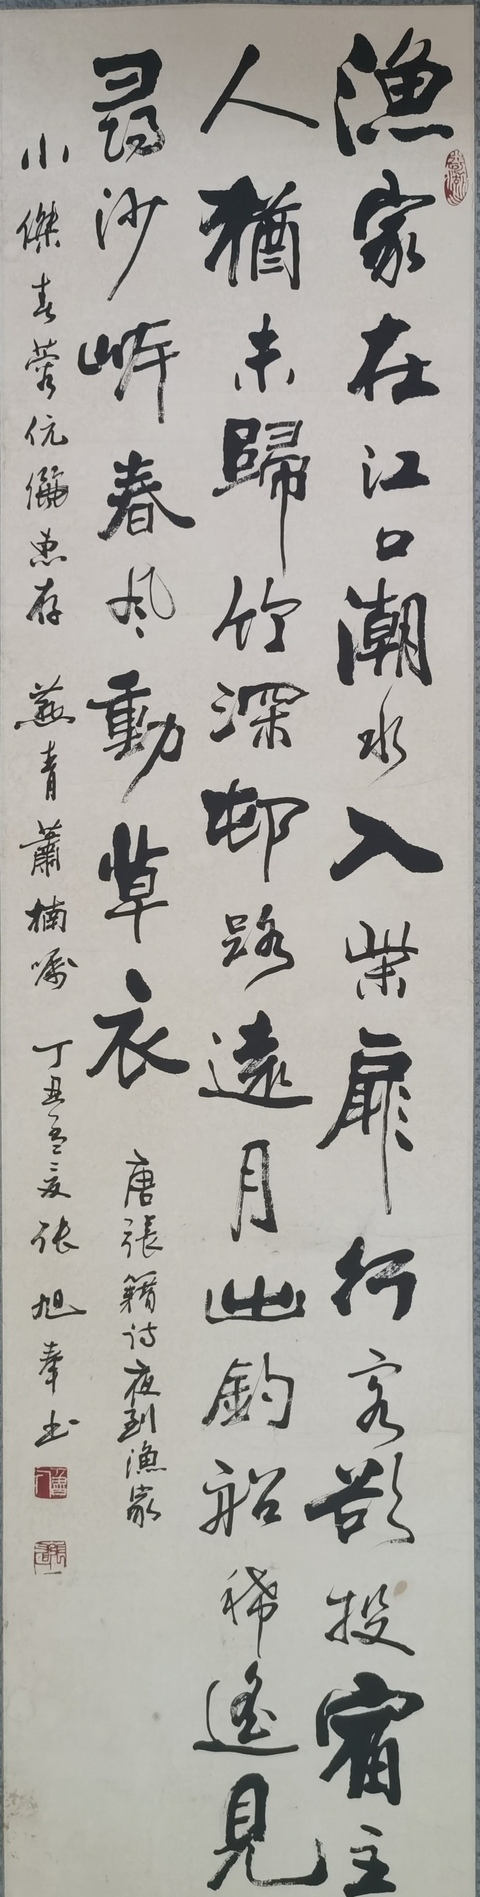 漁家在江口潮水入柴扉行客欲投宿主
人猶未歸竹深邨路遠月出釣船稀遙見
尋沙岸春風動草衣
唐張籍诗夜到漁家
小傑春蓉伉儷惠存 燕青蕭楠嘱 丁丑孟夏张旭奉书